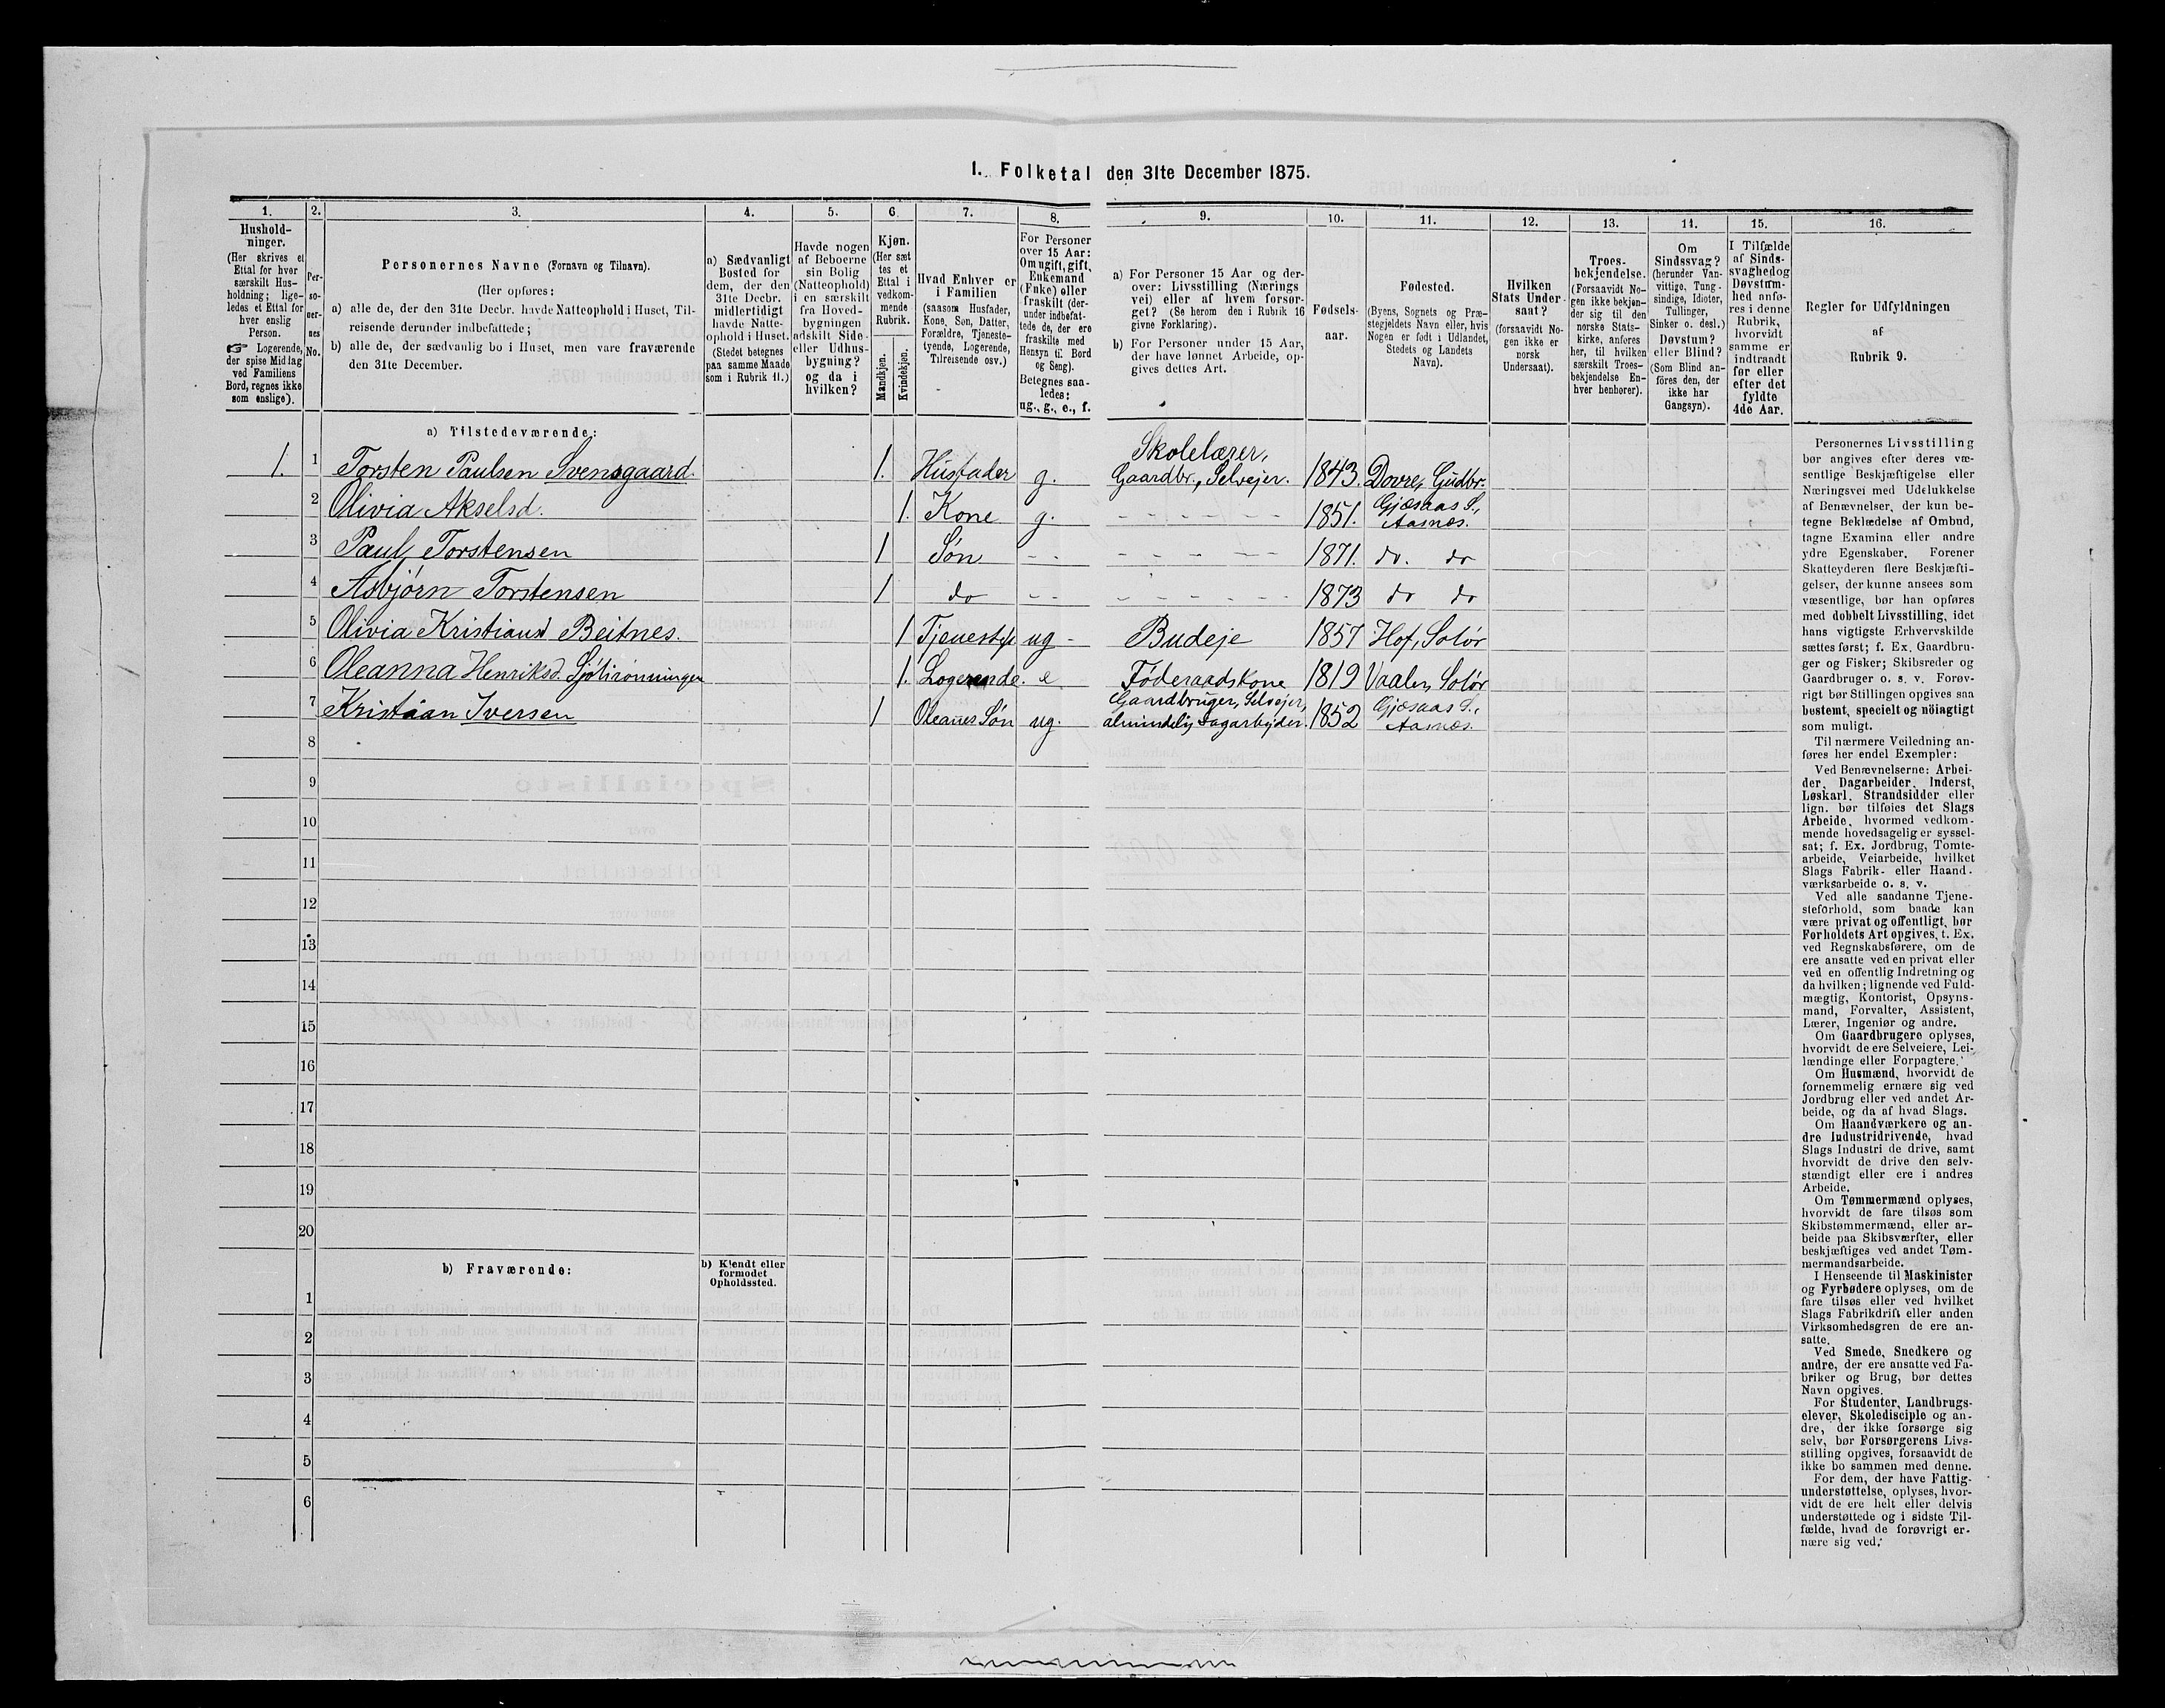 I. Folketal den 31te December 1875.
1.
2.
3.
4.
5.
6.
7.
8.
9.
10.
11.
12.
13.
14.
15.
16.
Hushold-
ninger.
(Her skrives et
Ettal for hver
særskilt Hus-
holdning; lige-
ledes et Ettal for
hver enslig
Person.
☞ Logerende,
der spise Middag
ved Familiens
Bord, regnes ikke
som enslige).
Per-
so-
ner-
nes
No.
Personernes Navne (Fornavn og Tilnavn).
(Her opføres:
a) alle de, der den 31te Decbr. havde Natteophold i Huset, Til-
reisende derunder indbefattede;
b) alle de, der sædvanlig bo i Huset, men vare fraværende
den 31te December.
a) Sædvanligt
Bosted for
dem, der den
31te Decbr.
midlertidigt
havde Natte-
ophold i Huset.
(Stedet betegnes
paa samme Maade
som i Rubrik 11.)
Havde nogen
af Beboerne
sin Bolig
(Natteophold)
i en særskilt
fra Hoved-
bygningen
adskilt Side-
eller Udhus-
bygning?
og da i
hvilken?
Kjøn.
(Her sæt
tes et
Ettal i
vedkom-
mende
Rubrik.
Mandkjøn.
Kvindekjøn.
Hvad Enhver er
i Familien
(saasom Husfader,
Kone, Søn, Datter,
Forældre, Tjeneste-
tyende, Logerende,
Tilreisende osv.)
For Personer
over 15 Aar:
Om ugift, gift,
Enkemand
(Enke) eller
fraskilt (der-
under indbefat-
tede de, der ere
fraskilte med
Hensyn til Bord
og Seng).
Betegnes saa-
ledes:
ug., g., e., f.
a) For Personer 15 Aar og der-
over: Livsstilling (Nærings
vei) eller af hvem forsør-
get? (Se herom den i Rubrik 16
givne Forklaring).
b) For Personer under 15 Aar,
der have lønnet Arbeide, op-
gives dettes Art.
Fødsels-
aar.
Fødested.
(Byens, Sognets og Præ-
stegjeldets Navn eller, hvis
Nogen er født i Udlandet,
Stedets og Landets
Navn).
Hvilken
Stats Under-
saat?
(forsaavidt No-
gen ikke er
norsk
Undersaat).
Troes-
bekjendelse.
(Forsaavidt No-
gen ikke bekjen-
der sig til den
norske Stats-
kirke, anføres
her, til hvilken
særskilt Troes-
bekjendelse En-
hver henhører).
Om
Sindssvag?
(herunder Van-
vittige, Tung-
sindige, Idioter,
Tullinger,
Sinker o. desl.)
Døvstum?
eller Blind?
(Som Blind an-
føres den, der
ikke har
Gangsyn).
I Tilfælde
af Sinds-
svaghed og
Døvstum-
hed anfø-
res i denne
Rubrik,
hvorvidt
samme er
indtraadt
før eller
efter det
fyldte
4de Aar.
Regler for Udfyldningen
af
Rubrik 9.
a) Tilstedeværende:
1. 1 Torsten Paulsen Svensgaard 1. Husfader g. Skolelærer, Gaardbr., Selvejer. 1843. Dovre, Gudbr.
2 Olivia Akselsd. 1. Kone g. - - - - - - 1851. Gjæsaas S., Aasnæs.
3 Paul Torstensen 1 Søn - - - - - - - 1871. do. do
4 Asbjørn Torstensen 1 do - - - - - - - 1873 do do
5 Olivia Kristiansd Beitnes. 1 Tjenestpe ug - Budeje 1857 Hof, Solør
6 Oleanna Henriksd. Sjølirønningen 1. Logerende. e Føderaadskone 1819 Vaaler, Solør
7 Kristian Iversen 1 Oleanes Søn ug. Gaardbruger, Selvejer, almindelig Dagarbejder. 1852 Gjæsaas S., Aasnæs.
8
9
10
11
12
13
14
15
16
17
18
19
20
b) Fraværende:
b) Kjendt eller
formodet
Opholdssted.
1
2
3
4
5
6
Personernes Livsstilling
bør angives efter deres væ-
sentlige Beskjæftigelse eller
Næringsvei med Udelukkelse
af Benævnelser, der kun be-
tegne Beklædelse af Ombud,
tagne Examina eller andre
ydre Egenskaber. Forener
Skatteyderen flere Beskjæfti-
gelser, der kunne ansees som
væsentlige, bør han opføres
med dobbelt Livsstilling, idet
hans vigtigste Erhvervskilde
sættes først; f. Ex. Gaardbru-
ger og Fisker; Skibsreder og
Gaardbruger o. s. v. Forøv-
rigt bør Stillingen opgives saa
bestemt, specielt og nöiagtigt
som muligt.
Til nærmere Veiledning an-
føres her endel Exempler:
Ved Benævnelserne: Arbei-
der, Dagarbeider, Inderst,
Løskarl, Strandsidder eller
lign. bør tilføies det Slags
Arbeide, hvormed vedkom-
mende hovedsagelig er syssel-
sat; f. Ex. Jordbrug, Tomte-
arbeide, Veiarbeide, hvilket
Slags Fabrik- eller Haand-
værksarbeide o. s. v.
Ved alle saadanne Tjene-
steforhold, som baade kan
være privat og offentligt, bør
Forholdets Art opgives, t. Ex.
ved Regnskabsførere, om de
ere ansatte ved en privat eller
ved en offentlig Indretning og
da hvilken; lignende ved Fuld-
mægtig, Kontorist, Opsyns-
mand, Forvalter, Assistent,
Lærer, Ingeniør og andre.
Om Gaardbrugere oplyses,
hvorvidt de ere Selveiere, Lei-
lændinge eller Forpagtere.
Om Husmænd, hvorvidt de
fornemmelig ernære sig ved
Jordbrug eller ved andet Ar-
beide, og da af hvad Slags.
Om Haandværkere og an-
dre Industridrivende, hvad
Slags Industri de drive, samt
hvorvidt de drive den selv-
stændigt eller ere i andres
Arbeide.
Om Tømmermænd oplyses,
hvorvidt de fare tilsøs som
Skibstømmermænd, eller ar-
beide paa Skibsværfter, eller
beskjæftiges ved andet Tøm-
mermandsarbeide.
I Henseende til Maskinister
og Fyrbødere oplyses, om de
fare tilsøs eller ved hvilket
Slags Fabrikdrift eller anden
Virksomhedsgren de ere an-
satte.
Ved Smede, Snedkere og
andre, der ere ansatte ved Fa-
briker og Brug, bør dettes
Navn opgives.
For Studenter, Landbrugs-
elever, Skoledisciple og an-
dre, der ikke forsørge sig
selv, bør Forsørgerens Livs-
stilling opgives, forsaavidt de
ikke bo sammen med denne.
For dem, der have Fattig-
understøttelse, oplyses, hvor-
vidt de ere helt eller delvis
understøttede og i sidste Til-
fælde, hvad de forøvrigt er-
nære sig ved.